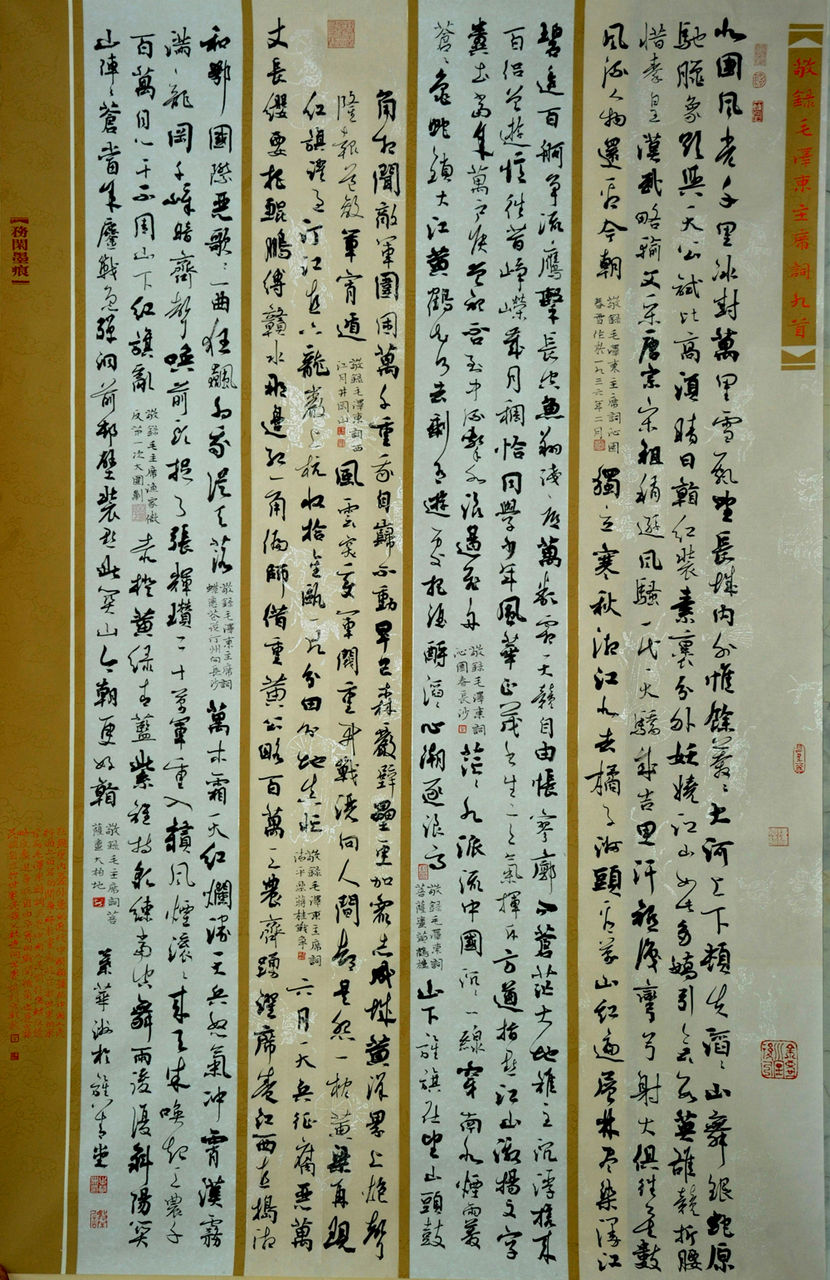 敬錄毛澤東主席詞九首
北國風光千里冰封萬里雪飄望長城內外惟餘莽〻大河上下頓失滔〻山舞銀蛇原
馳臘象欲與天公試比高須晴日看紅裝素裹分外妖嬈江山如此多嬌引無數英雄競折腰
惜秦皇漢武略輸文采唐宗宋祖稍遜風騷一代天驕成吉思汗祗識彎弓射大俱往矣數
風流人物還看今朝
敬錄毛澤東主席詞沁園
春雪作於一九三六年二月
獨立寒秋湘江北去橘子洲頭看萬山紅遍層林盡染漫江
碧透百舸爭流鷹擊長空魚翔淺底萬類霜天競自由悵寥廓問蒼茫大地誰主沉浮攜來
百侶曾遊憶往昔崢嶸歲月稠恰同學少年風華正茂書生意氣揮斥方遒指點江山激揚文字
糞土當年萬戶侯曾記否到中流擊水浪遏飛舟
敬錄毛澤東詞
沁園春長沙
茫〻九派流中國沉〻一線穿南北煙雨莽
蒼〻龜蛇鎖大江黃鶴知何去剩有遊處把酒酹滔〻心潮逐浪高
敬錄毛澤東詞
菩薩蠻黃鶴樓
山下旌旗在望山頭鼓
角相聞敵軍圍困萬千重我自巋不動早已森嚴壁壘更加眾志成城黃洋界上炮聲
隆報道敵軍宵遁
敬錄毛澤東詞西
江月井岡山
風雲突變軍閥重開戰灑向人間都是怨一枕黃粱再現
紅旗躍過汀江直下龍巖上杭收拾金甌一片分田分地真忙
敬錄毛澤東主席詞
清平樂蔣桂戰爭
六月天兵征腐惡萬
丈長纓要把鯤鵬縛贛水那邊紅一角偏師借重黃公略百萬工農齊踴躍席卷江西直搗湘
和鄂國際悲歌〻一曲狂飆為我從天落
敬錄毛澤東主席詞
蝶戀花從汀州向長沙
萬木霜天紅爛漫天兵怒氣沖霄漢霧
滿〻龍岡千嶂暗齊聲喚前頭捉了張輝瓚二十萬軍重入贛風煙滾〻來天半喚起工農千
百萬同心干不周山下紅旗亂
敬錄毛主席漁家傲
反第一次大圍剿
赤橙黃綠青藍紫誰持彩練當空舞雨後復斜陽關
山陣〻蒼當年鏖戰急彈洞前村壁裝點此關山今朝更好看
敬錄毛主席詞菩
薩蠻大柏地
務閑墨痕